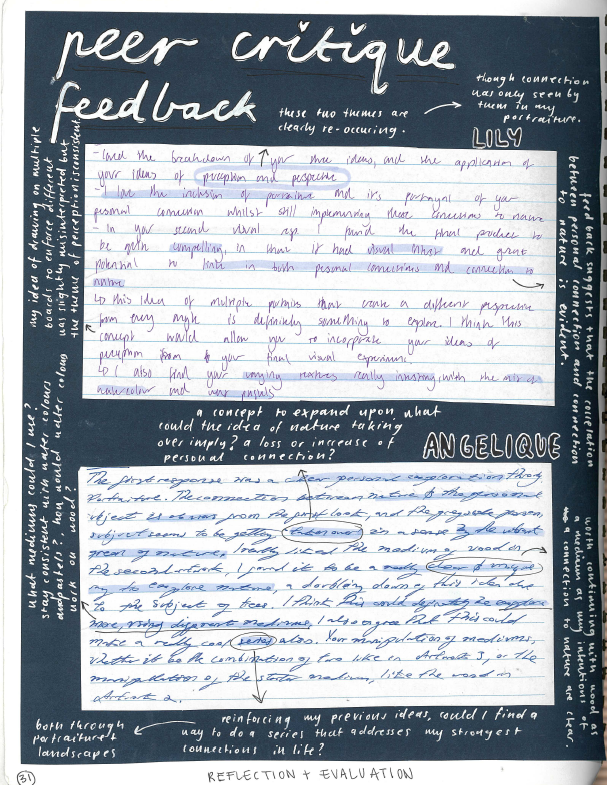 peer critique
feedback
these two themes are
clearly re-occuring.
though connection
was only seen by
them in my
portraiture.
LILY
- loved the breakdown of your three ideas, and the application of
your ideas of perception and perspective
- I love the inclusion of portraiture and it's portrayal of your
personal connection whilst still implementing these connections to nature
- In your second visual exp. I found the final product to
be quite compelling, in that it had visual interest and great
potential to link in both personal connections and connection to
nature
↳ this idea of multiple portraits that create a different perspective
from every angle is definitely something to explore. I think this
concept would allow you to incorporate your ideas of
perception from your final visual experiment.
↳ I also find your varying textures really interesting, with the mix of
watercolour and wax pastels
my idea of drawing on multiple
boards to enforce different
was slightly misinterpreted but
the theme of perception is consistent.
feed back suggests that the correlation
between personal connections and connection
to nature is evident.
a concept to expand upon, what
could the idea of nature taking
over imply? a loss or increase of
personal connection?
ANGELIQUE
The first response was a clear personal exploration through
portraiture. The connections between nature & the personal
object is shown from the first look, and the greyscale person,
subject seems to be getting taken over in a sense by the vibrant
green of nature. I really liked the medium of wood in
the second artwork, I found it to be a really clear & unique
way to explore nature, a doubling down of this idea due
to the subject of trees. I think this could definitely be explored
more, using different mediums, I also agree that this could
make a really cool series also. Your manipulation of mediums,
whether it be the combination of two like in Artwork 3, or the
manipulation of the starter medium, like the wood in
Artwork 2.
what mediums could I use?
stay consistent with water colours
and pastels? how would water colour
work on wood?
worth continuing with wood as
a medium as my intentions of
a connection to nature are clear.
both through
portraiture +
landscapes
reinforcing my previous ideas, could I find a
way to do a series that addresses my strongest
connections in life?
31
REFLECTION + EVALUATION